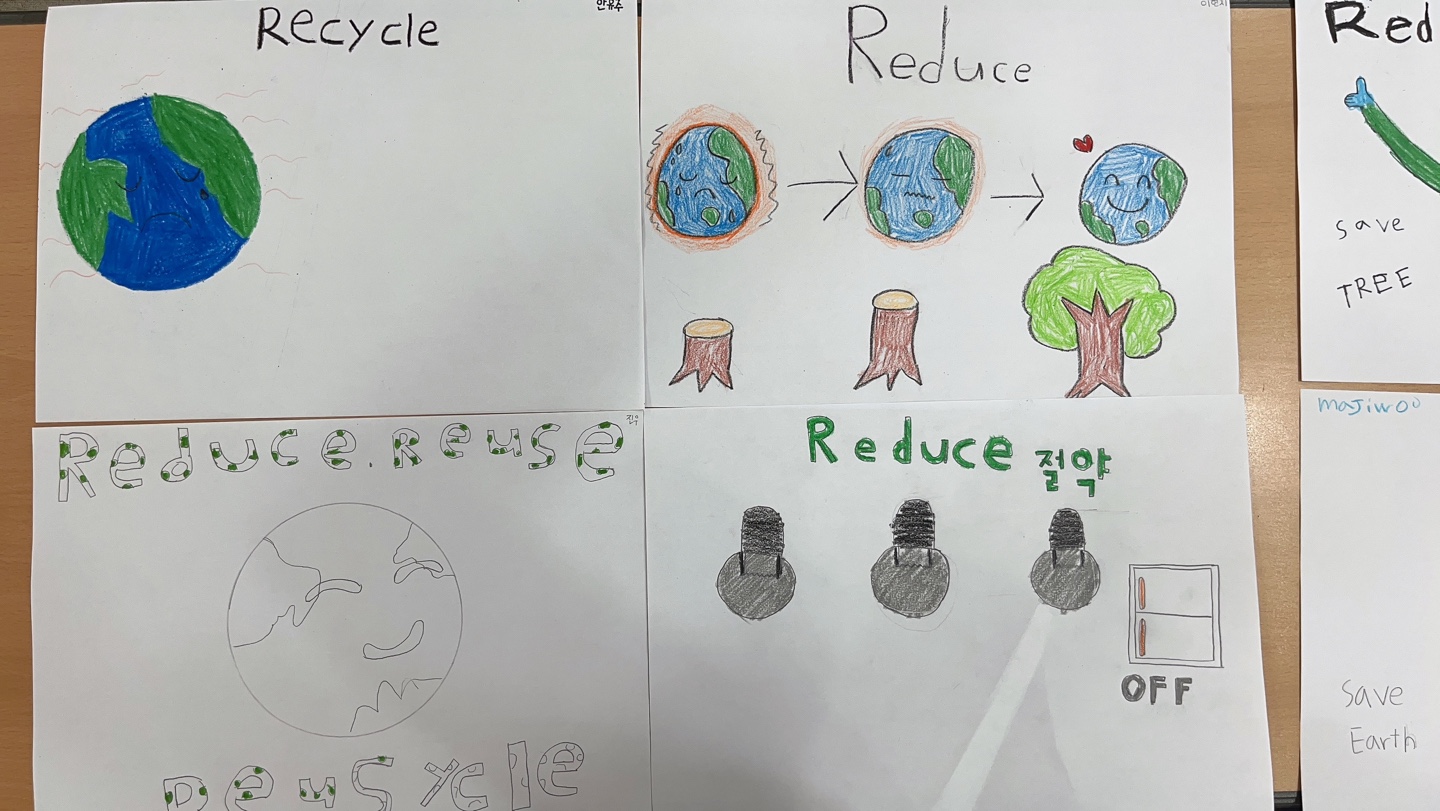 안유수
Recycle
이현지
Reduce
Red
save
TREE
진우
Reduce. Reuse
Reusycle
Reduce 절약
OFF
majiwoo
Save
Earth